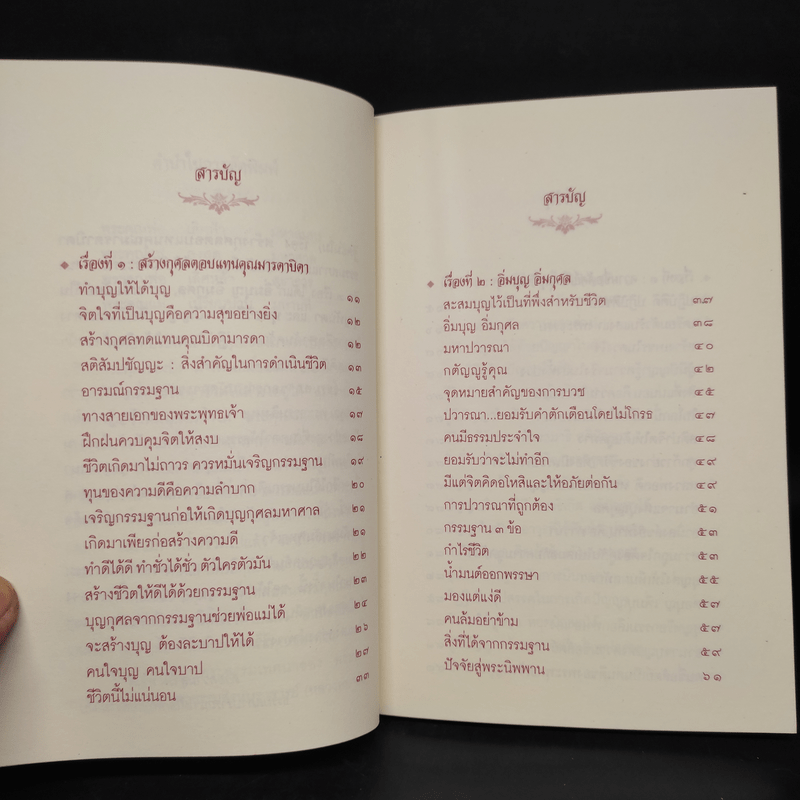 สารบัญ
เรื่องที่ ๑ : สร้างกุศลตอบแทนคุณมารดาบิดา
ทำบุญให้ได้บุญ ๑๑
จิตใจที่เป็นบุญคือความสุขอย่างยิ่ง ๑๒
สร้างกุศลทดแทนคุณบิดามารดา ๑๒
สติสัมปชัญญะ : สิ่งสำคัญในการดำเนินชีวิต ๑๓
อารมณ์กรรมฐาน ๑๕
ทางสายเอกของพระพุทธเจ้า ๑๗
ฝึกฝนควบคุมจิตให้สงบ ๑๘
ชีวิตเกิดมาไม่ถาวร ควรหมั่นเจริญกรรมฐาน ๑๙
ทุนของความดีคือความลำบาก ๒๐
เจริญกรรมฐานก่อให้เกิดบุญกุศลมหาศาล ๒๑
เกิดมาเพียรก่อสร้างความดี ๒๑
ทำดีได้ดี ทำชั่วได้ชั่ว ตัวใครตัวมัน ๒๒
สร้างชีวิตให้ดีได้ด้วยกรรมฐาน ๒๓
บุญกุศลจากกรรมฐานช่วยพ่อแม่ได้ ๒๔
จะสร้างบุญ ต้องละบาปให้ได้ ๒๖
คนใจบุญ คนใจบาป ๒๗
ชีวิตนี้ไม่แน่นอน ๓๓
สารบัญ
เรื่องที่ ๒ : อิ่มบุญ อิ่มกุศล
สะสมบุญไว้เป็นที่พึ่งสำหรับชีวิต ๓๗
อิ่มบุญ อิ่มกุศล ๓๘
มหาปวารณา ๔๐
กตัญญูรู้คุณ ๔๒
จุดหมายสำคัญของการบวช ๔๕
ปวารณา...ยอมรับคำตักเตือนโดยไม่โกรธ ๔๗
คนมีธรรมประจำใจ ๔๘
ยอมรับว่าจะไม่ทำอีก ๔๙
มีแต่จิตคิดอโหสิและให้อภัยต่อกัน ๔๙
การปวารณาที่ถูกต้อง ๕๑
กรรมฐาน ๓ ข้อ ๕๓
กำไรชีวิต ๕๓
น้ำมนต์ออกพรรษา ๕๕
มองแต่แง่ดี ๕๗
คนล้มอย่าข้าม ๕๗
สิ่งที่ได้จากกรรมฐาน ๕๙
ปัจจัยสู่พระนิพพาน ๖๑